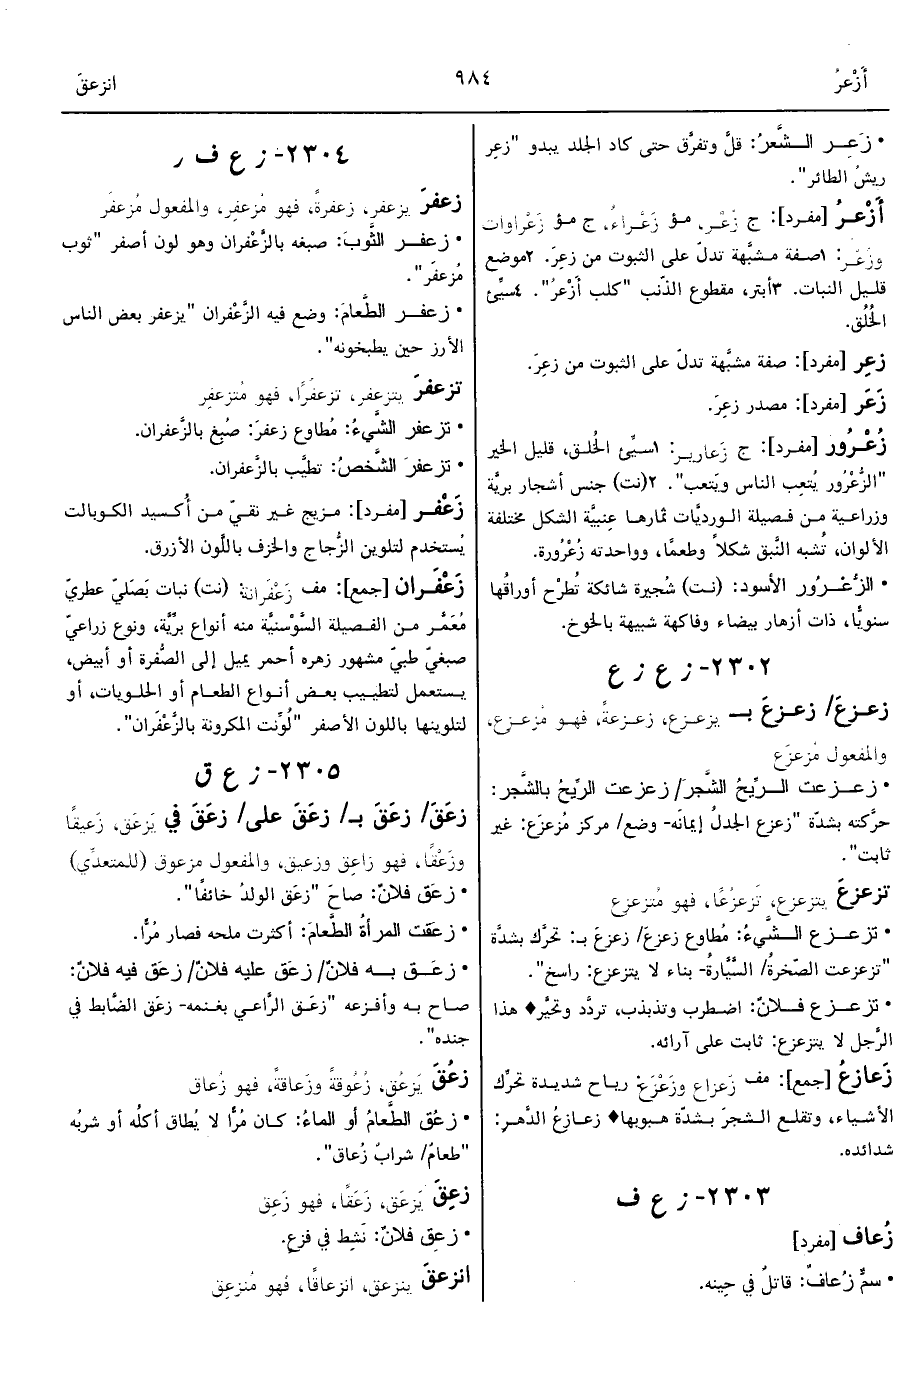 أَزْعرُ
٩٨٤
انزعقَ
• زَعِر الشَّعرُ: قلَّ وتفرَّق حتى كاد الجلد يبدو "زعِر
ريشُ الطائر".
أَزْعرُ [مفرد]: ج زُعْر، مؤ زَعْراءُ، ج مؤ زَعْراوات
وزُعْر: ١صفة مشبَّهة تدلّ على الثبوت من زعِرَ. ٢موضع
قليل النبات. ٣أبتر، مقطوع الذّنب "كلب أزْعرُ". ٤سيِّئ
الخُلُق.
زعِر [مفرد]: صفة مشبَّهة تدلّ على الثبوت من زعِرَ.
زَعَر [مفرد]: مصدر زعِرَ.
زُعْرُور [مفرد]: ج زَعارير: ١سيِّئ الخُلق، قليل الخير
"الزُّعْرُور يُتعِب الناس ويَتعب". ٢(نت) جنس أشجار بريَّة
وزراعية من فصيلة الورديَّات ثمارها عِنبيَّة الشكل مختلفة
الألوان، تُشبه النَّبق شكلاً وطعمًا، وواحدته زُعْرُورة.
• الزُّعْرُور الأسود: (نت) شُجيرة شائكة تُطرِّح أوراقُها
سنويًّا، ذات أزهار بيضاء وفاكهة شبيهة بالخوخ.
٢٣٠٢- ز ع ز ع
زعزعَ/ زعزعَ بـ يزعزع، زعزعةً، فهو مُزعزِع،
والمفعول مُزعزَع
• زعزعت الرِّيحُ الشَّجرَ/ زعزعت الرِّيحُ بالشَّجر:
حرَّكته بشدَّة "زعزع الجدلُ إيمانَه- وضع/ مركز مُزعزَع: غير
ثابت".
تزعزعَ يتزعزع، تَزعزُعًا، فهو مُتزعزِع
• تزعزع الشَّيءُ: مُطاوع زعزعَ/ زعزعَ بـ: تحرَّك بشدَّة
"تزعزعت الصّخرةُ/ السَّيَّارةُ- بناء لا يتزعزع: راسخ".
• تزعزع فلانٌ: اضطرب وتذبذب، تردَّد وتحيَّر♦ هذا
الرَّجل لا يتزعزع: ثابت على آرائه.
زَعازعُ [جمع]: مف زَعزاع وزَعْزَع: رياح شديدة تحرِّك
الأشياء، وتقلع الشجرَ بشدّة هبوبها♦ زعازعُ الدَّهر:
شدائده.
٢٣٠٣- ز ع ف
زُعاف [مفرد]
• سمٌّ زُعافٌ: قاتلٌ في حِينه.
٢٣٠٤- ز ع ف ر
زعفرَ يزعفر، زعفرةً، فهو مُزعفِر، والمفعول مُزعفَر
• زعفر الثَّوبَ: صبغه بالزَّعْفران وهو لون أصفر "ثوب
مُزعفَر".
• زعفر الطَّعامَ: وضع فيه الزَّعْفران "يزعفر بعض الناس
الأرز حين يطبخونه".
تزعفرَ يتزعفر، تزعفُرًا، فهو مُتزعفِر
• تزعفر الشَّيءُ: مُطاوع زعفرَ: صُبِغ بالزَّعفران.
• تزعفرَ الشَّخصُ: تطيَّب بالزَّعفران.
زَعْفر [مفرد]: مزيج غير نقيّ من أُكسيد الكوبالت
يُستخدم لتلوين الزُّجاج والخزف باللَّون الأزرق.
زَعْفَران [جمع]: مف زَعْفَرانة: (نت) نبات بَصَليّ عطريّ
مُعَمَّر من الفصيلة السَّوْسنيَّة منه أنواع بريَّة، ونوع زراعيّ
صبغيّ طبيّ مشهور زهره أحمر يميل إلى الصُّفرة أو أبيض،
يستعمل لتطييب بعض أنواع الطعام أو الحلويات، أو
لتلوينها باللون الأصفر "لُوِّنت المكرونة بالزَّعْفَران".
٢٣٠٥- ز ع ق
زعَقَ/ زعَقَ بـ/ زعَقَ على/ زعَقَ في يَزعَق، زَعيقًا
وزَعْقًا، فهو زاعِق وزعيق، والمفعول مزعوق (للمتعدِّي)
• زعَق فلانٌ: صاحَ "زعَق الولدُ خائفًا".
• زعَقت المرأةُ الطَّعامَ: أكثرت ملحه فصار مُرًّا.
• زعَق به فلانٌ/ زعَق عليه فلانٌ/ زعَق فيه فلانٌ:
صاح به وأفزعه "زعَق الرَّاعي بغنمه- زعَق الضَّابط في
جنده".
زعُقَ يَزعُق، زُعُوقةً وزَعاقةً، فهو زُعاق
• زعُق الطَّعامُ أو الماءُ: كان مُرًّا لا يُطاق أكلُه أو شربُه
"طعامٌ/ شرابٌ زُعاق".
زعِقَ يَزعَق، زَعَقًا، فهو زَعِق
• زعِق فلانٌ: نَشِط في فزع.
انزعقَ ينزعق، انزعاقًا، فهو مُنزعِق